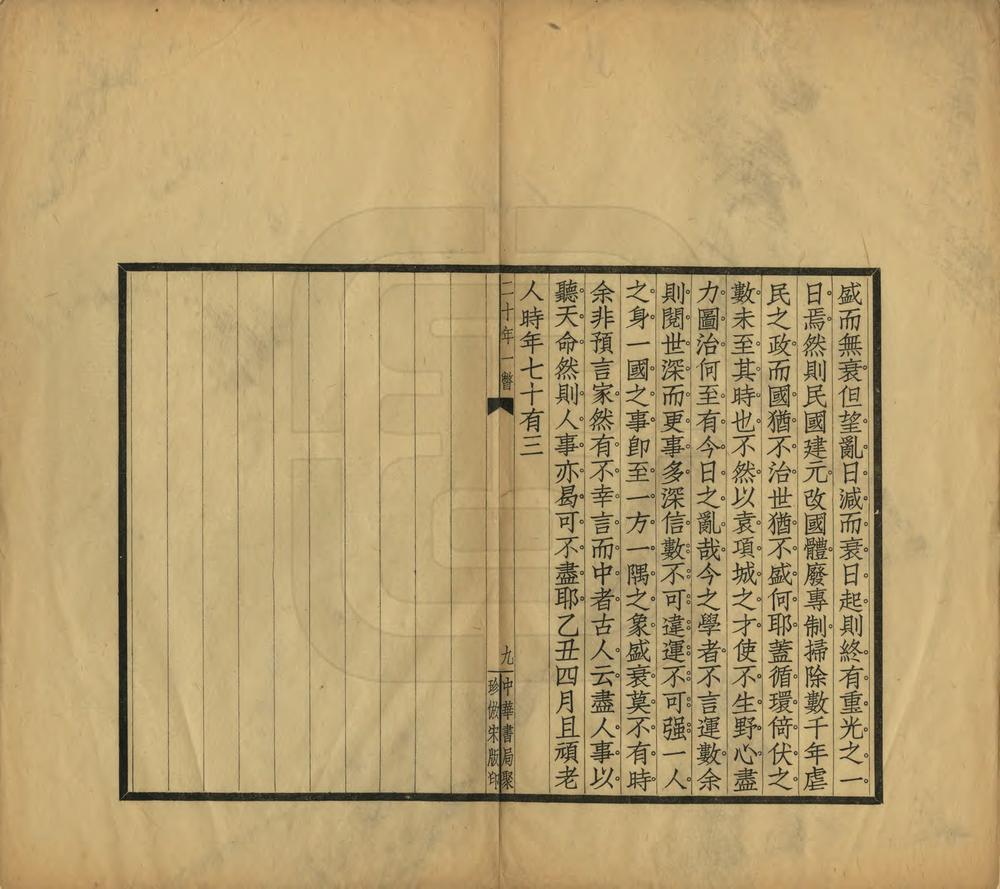 盛而無衰但望亂日減而衰日起則終有重光之一
日焉然則民國建元改國體廢專制掃除數千年虐
民之政而國猶不治世猶不盛何耶蓋循環倚伏之
數未至其時也不然以袁項城之才使不生野心盡
力圖治何至有今日之亂哉今之學者不言運數余
則閱世深而更事多深信數不可違運不可强一人
之身一國之事卽至一方一隅之象盛衰莫不有時
余非預言家然有不幸言而中者古人云盡人事以
聽天命然則人事亦曷可不盡耶乙丑四月且頑老
人時年七十有三
二十年一瞥
九
中華書局聚
珍倣宋版印